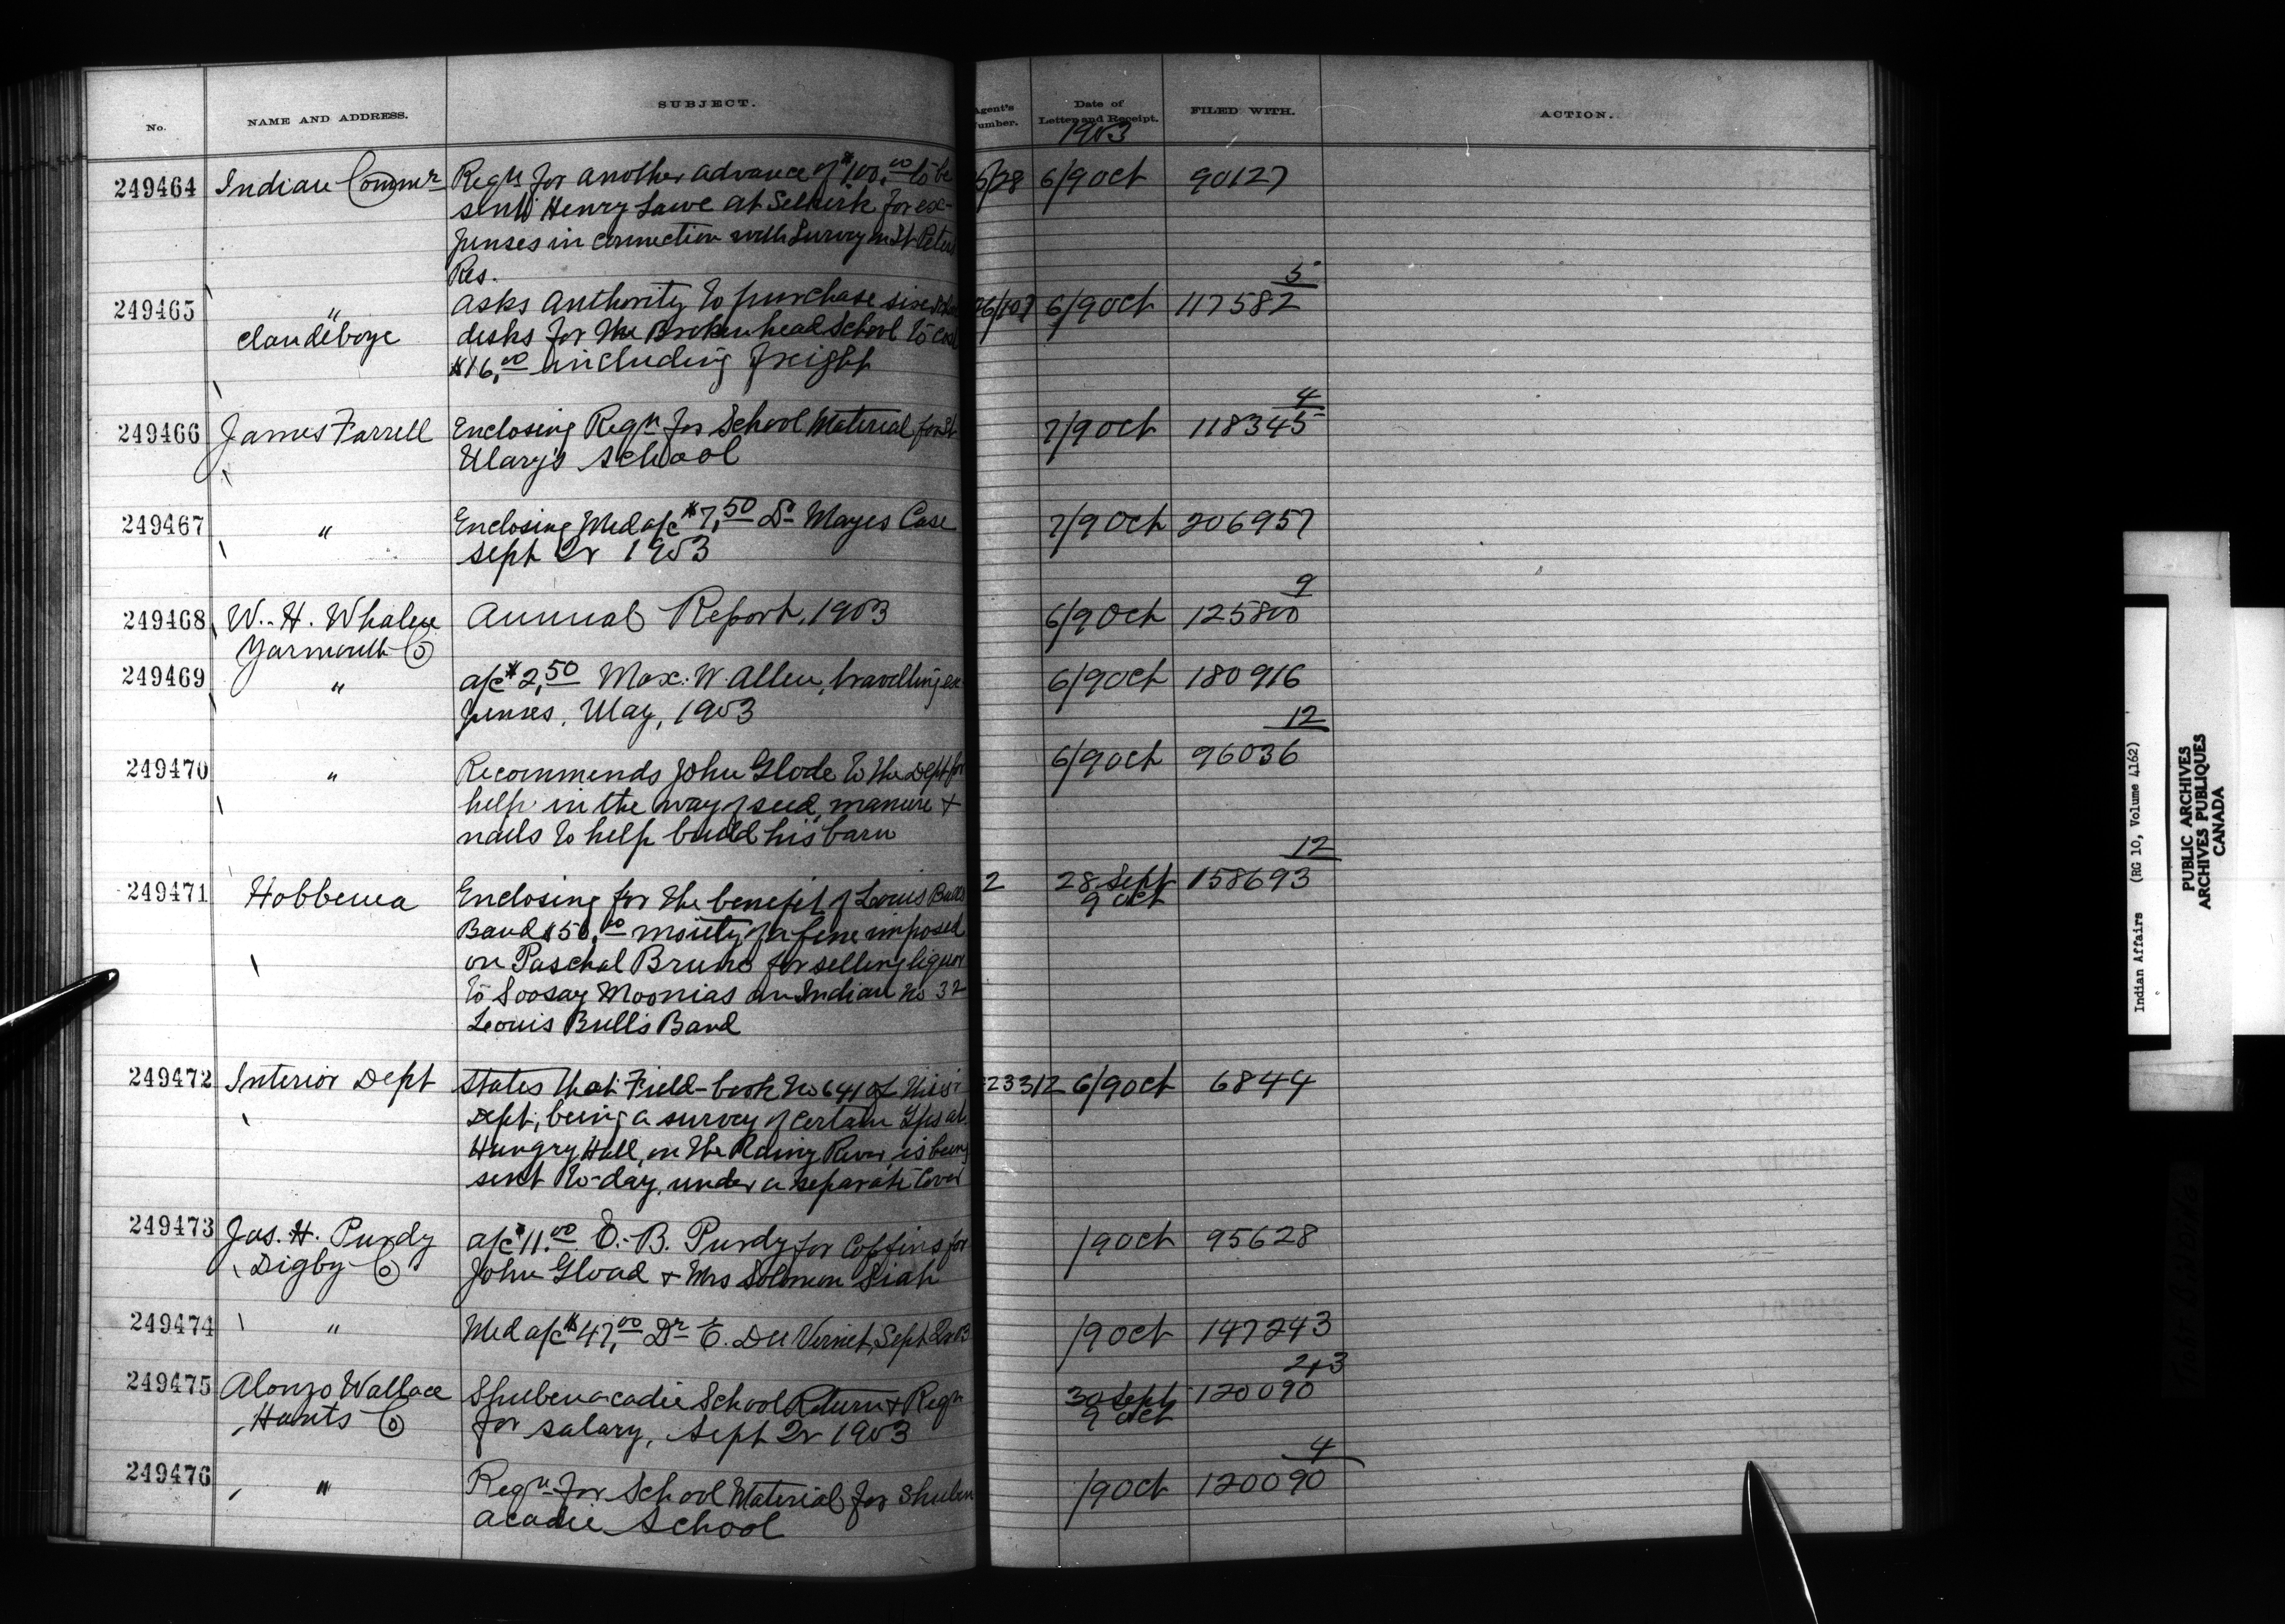 No. NAME AND ADDRESS. SUBJECT. Agent's Number. Date of Letter and Receipt. FILED WITH. ACTION.
1903
249464 Indian Commr Reqn for another advance of $100.00 to be 6/9 Oct 90127
sent Henry Lawe at Selkirk for ex-
penses in connection with Survey in St Peters
Res.
5
249465 " asks authority to purchase six 6/9 Oct 117582
Clandeboye desks for the Brokenhead School to cost
$16.00 including freight
4
249466 James Farrell Enclosing Reqn for School Material for St 7/9 Oct 118345
Mary's School
249467 " Enclosing Med a/c $7.50 Dr Mayes Case 7/9 Oct 206957
Sept Qr 1903
9
249468 W. H. Whalen Annual Report, 1903 6/9 Oct 125800
Yarmouth Co
249469 " a/c $2.50 Max. W. Allen, travelling ex 6/9 Oct 180916
penses, May, 1903
12
249470 " Recommends John Glode to the Dept for 6/9 Oct 96036
help in the way of seed, manure &
nails to help build his barn
12
249471 Hobbema Enclosing for the benefit of Louis Bulls 2 28 Sept 158693
9 Oct
Band $50.00 moiety of a fine imposed
on Paschal Bruno for selling liquor
to Soosay Moonias an Indian No 32
Louis Bull's Band
249472 Interior Dept States that Field-book No 641 of this 23312 6/9 Oct 6844
Dept, being a survey of certain Tps at
Hungry Hall, on the Rainy River, is being
sent to-day, under a separate cover
249473 Jas. H. Purdy a/c $11.00 E. B. Purdy for Coffins for /9 Oct 95628
Digby Co John Gload & Mrs Solomon Siah
249474 " Med a/c $47.00 Dr E. Du Vernet, Sept Qr 03 /9 Oct 147243
2+3
249475 Alonzo Wallace Shubenacadie School Return & Reqn 30 Sept 120090
9 Oct
Hants Co for salary, Sept Qr 1903
4
249476 " Reqn for School Material for Shuben /9 Oct 120090
acadie School
Indian Affairs (RG 10, Volume 4162)
PUBLIC ARCHIVES
ARCHIVES PUBLIQUES
CANADA